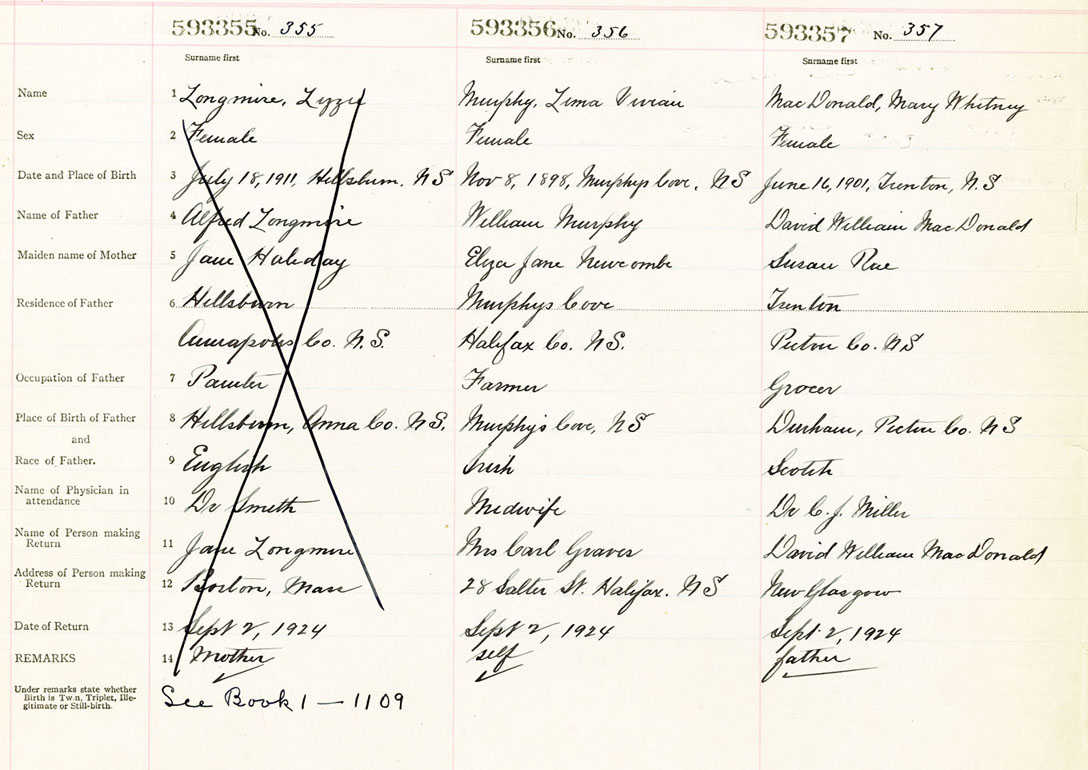 593355 No. 355 593356 No. 356 593357 No. 357
Surname first Surname first Surname first
Name 1 Longmire, Lizzie Murphy, Lima Vivian MacDonald, Mary Whitney
Sex 2 Female Female Female
Date and Place of Birth 3 July 18, 1911, Hillsburn, NS Nov 8, 1898, Murphys Cove, NS June 16, 1901, Trenton, N.S
Name of Father 4 Alfred Longmire William Murphy David William MacDonald
Maiden name of Mother 5 Jane Haliday Eliza Jane Newcombe Susan Rae
Residence of Father 6 Hillsburn Murphys Cove Trenton
Annapolis Co. N.S. Halifax Co. NS. Pictou Co. NS
Occupation of Father 7 Painter Farmer Grocer
Place of Birth of Father 8 Hillsburn, Anna Co. NS. Murphy's Cove, NS Durham, Pictou Co. NS
and
Race of Father. 9 English Irish Scotch
Name of Physician in
attendance 10 Dr Smith Midwife Dr C. J. Miller
Name of Person making
Return 11 Jane Longmire Mrs Carl Graves David William MacDonald
Address of Person making
Return 12 Boston, Mass 28 Salter St. Halifax. NS New Glasgow
Date of Return 13 Sept 2, 1924 Sept 2, 1924 Sept 2, 1924
REMARKS 14 Mother self father
Under remarks state whether
Birth is Twin, Triplet, Ille-
gitimate or Still-birth.
See Book 1 — 1109